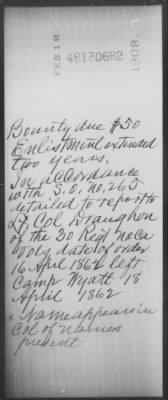 FEB 18
48130682
1908.
Bounty due $50
Enlistment extended
two years.
In accordance
with S.O. No. 265
detailed to report to
Lt Col Draughon
of the 30 Regt No Ca
Vols, date of order
16 April 1862 left
Camp Wyatt 18
April 1862
x Name appears in
Col of names
present